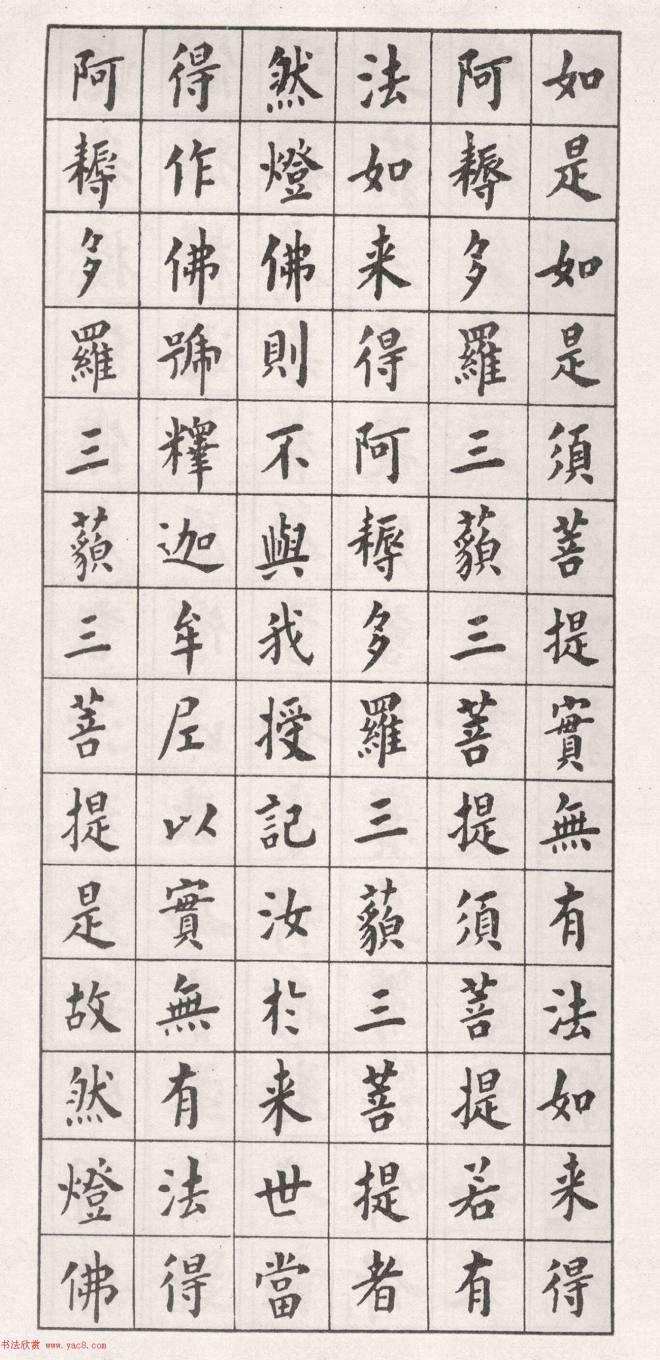 如是如是須菩提實無有法如来得
阿耨多羅三藐三菩提須菩提若有
法如来得阿耨多羅三藐三菩提者
然燈佛則不與我授記汝於来世當
得作佛號釋迦牟尼以實無有法得
阿耨多羅三藐三菩提是故然燈佛
书法欣赏 www.yac8.com